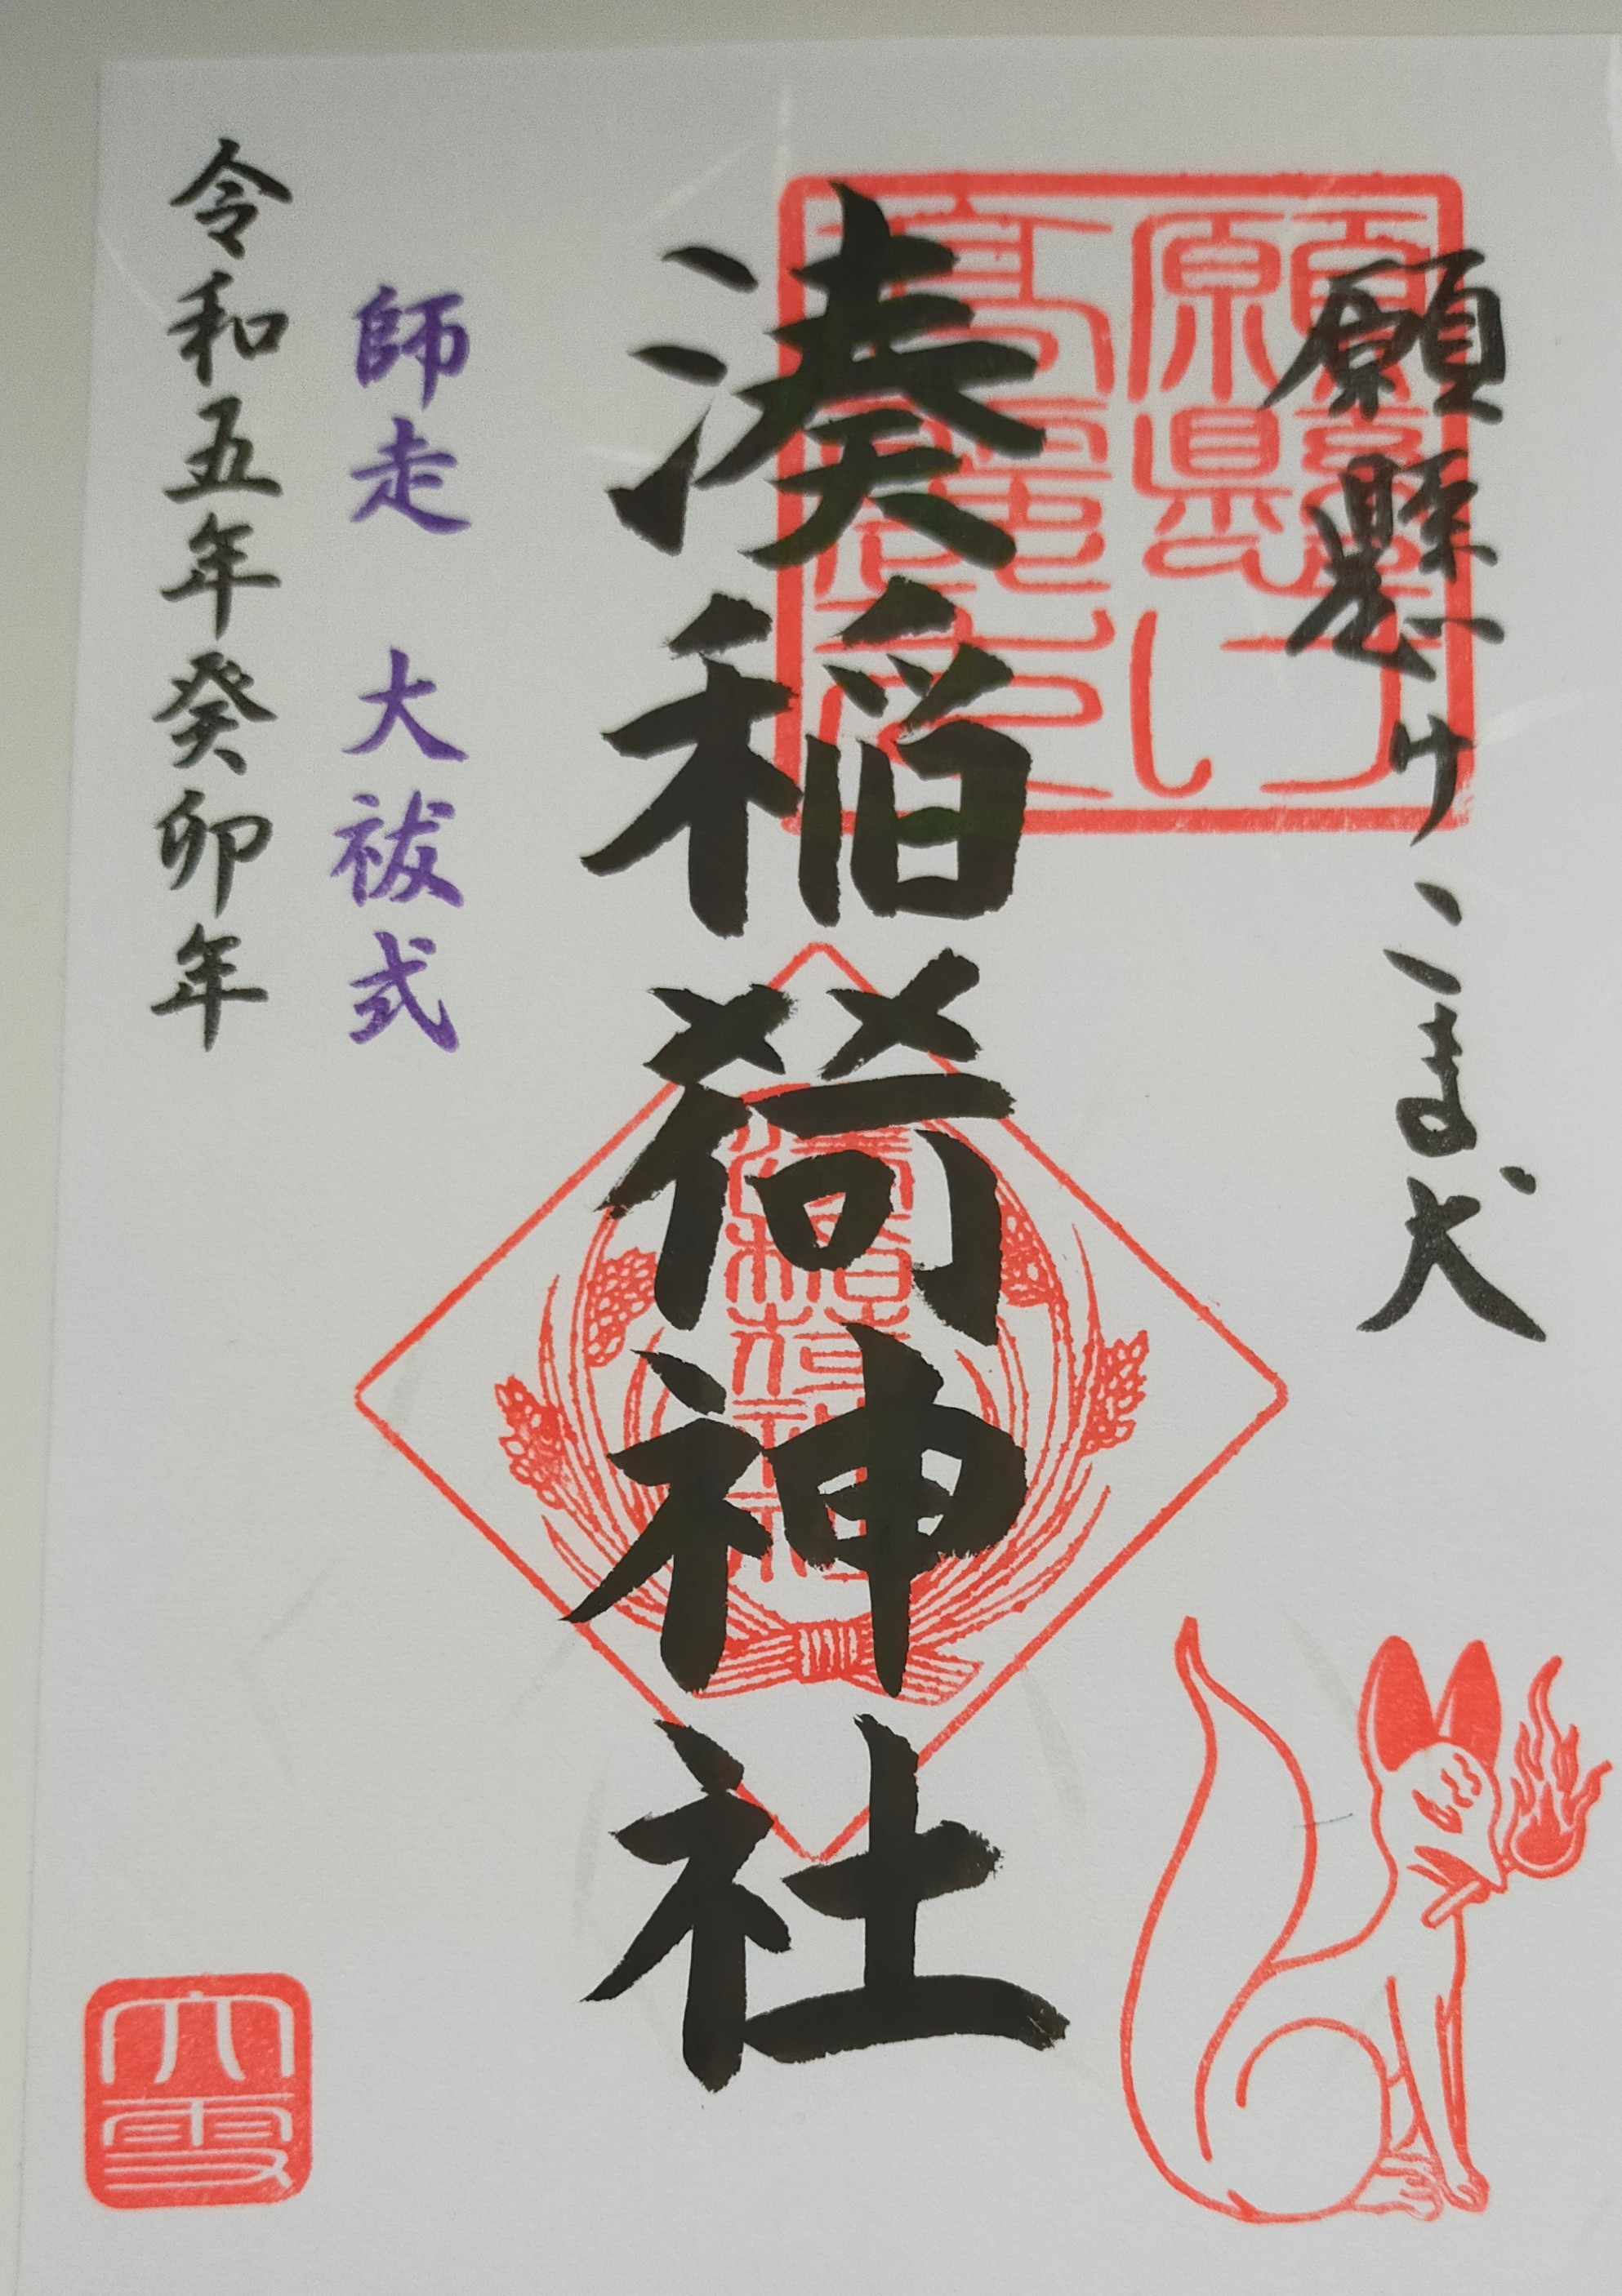 願懸け こま犬
湊稲荷神社
師走 大祓式
令和五年癸卯年
大雪